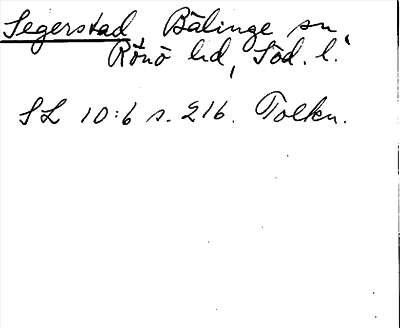 Segerstad Bälinge sn,
Rönö hd, Söd. l.
SL 10:6 s. 216. Tolkn.